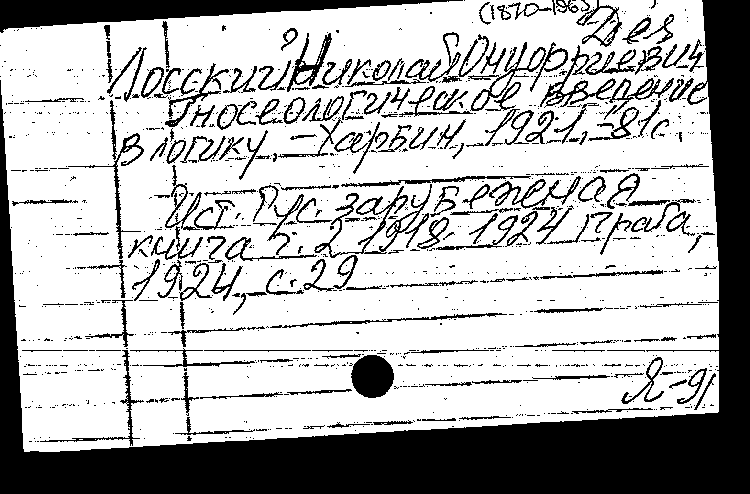 (1870-1965) Дез
Лосский Николай Онуфриевич
Гносеологическое введение
в логику. - Харбин, 1921. - 81 с.
Ист. Рус. зарубежная
книга ч. 2 1918-1924 Прага,
1924, с. 29
Я-91